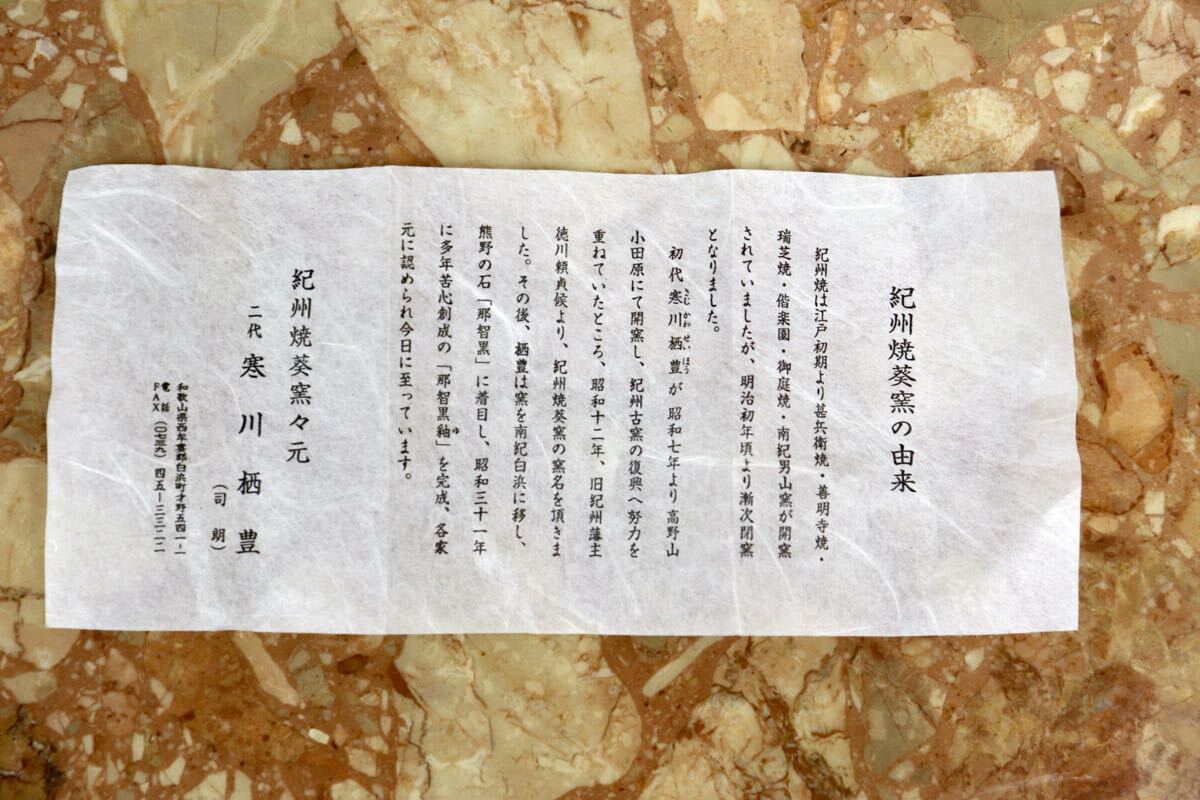 紀州焼葵窯の由来
紀州焼は江戸初期より甚兵衛焼・善明寺焼・
瑞芝焼・偕楽園・御庭焼・南紀男山窯が開窯
されていましたが、明治初年頃より漸次閉窯
となりました。
初代寒川栖豊が昭和七年より高野山
さむかわせいほう
小田原にて開窯し、紀州古窯の復興へ努力を
重ねていたところ、昭和十二年、旧紀州藩主
徳川頼貞候より、紀州焼葵窯の窯名を頂きま
した。その後、栖豊は窯を南紀白浜に移し、
熊野の石「那智黒」に着目し、昭和三十一年
に多年苦心創成の「那智黒釉」を完成、各家
ゆ
元に認められ今日に至っています。
紀州焼葵窯々元
二代 寒川栖豊
(司朗)
和歌山県西牟婁郡白浜町才野一五四一−一
電話
FAX (〇七三九) 四五−三三二二